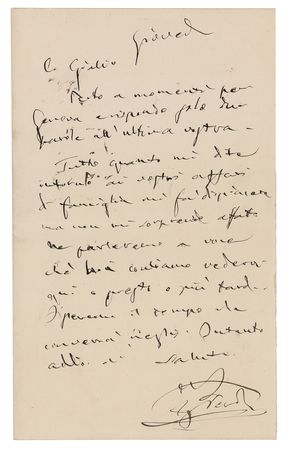 Giovedì
C. Giulio
Parto a momenti per
Genova e rispondo solo due
parole all'ultima vostra -
Tutto quanto mi dite
intorno ai vostri affari
di famiglia mi fa dispiacere
ma non mi sorprende affatto
Ne parleremo a voce
chè contiamo vederci
qui o presto o più tardi.
Speremo il tempo che
converrà meglio. Intanto
addio. Saluti
G Verdi